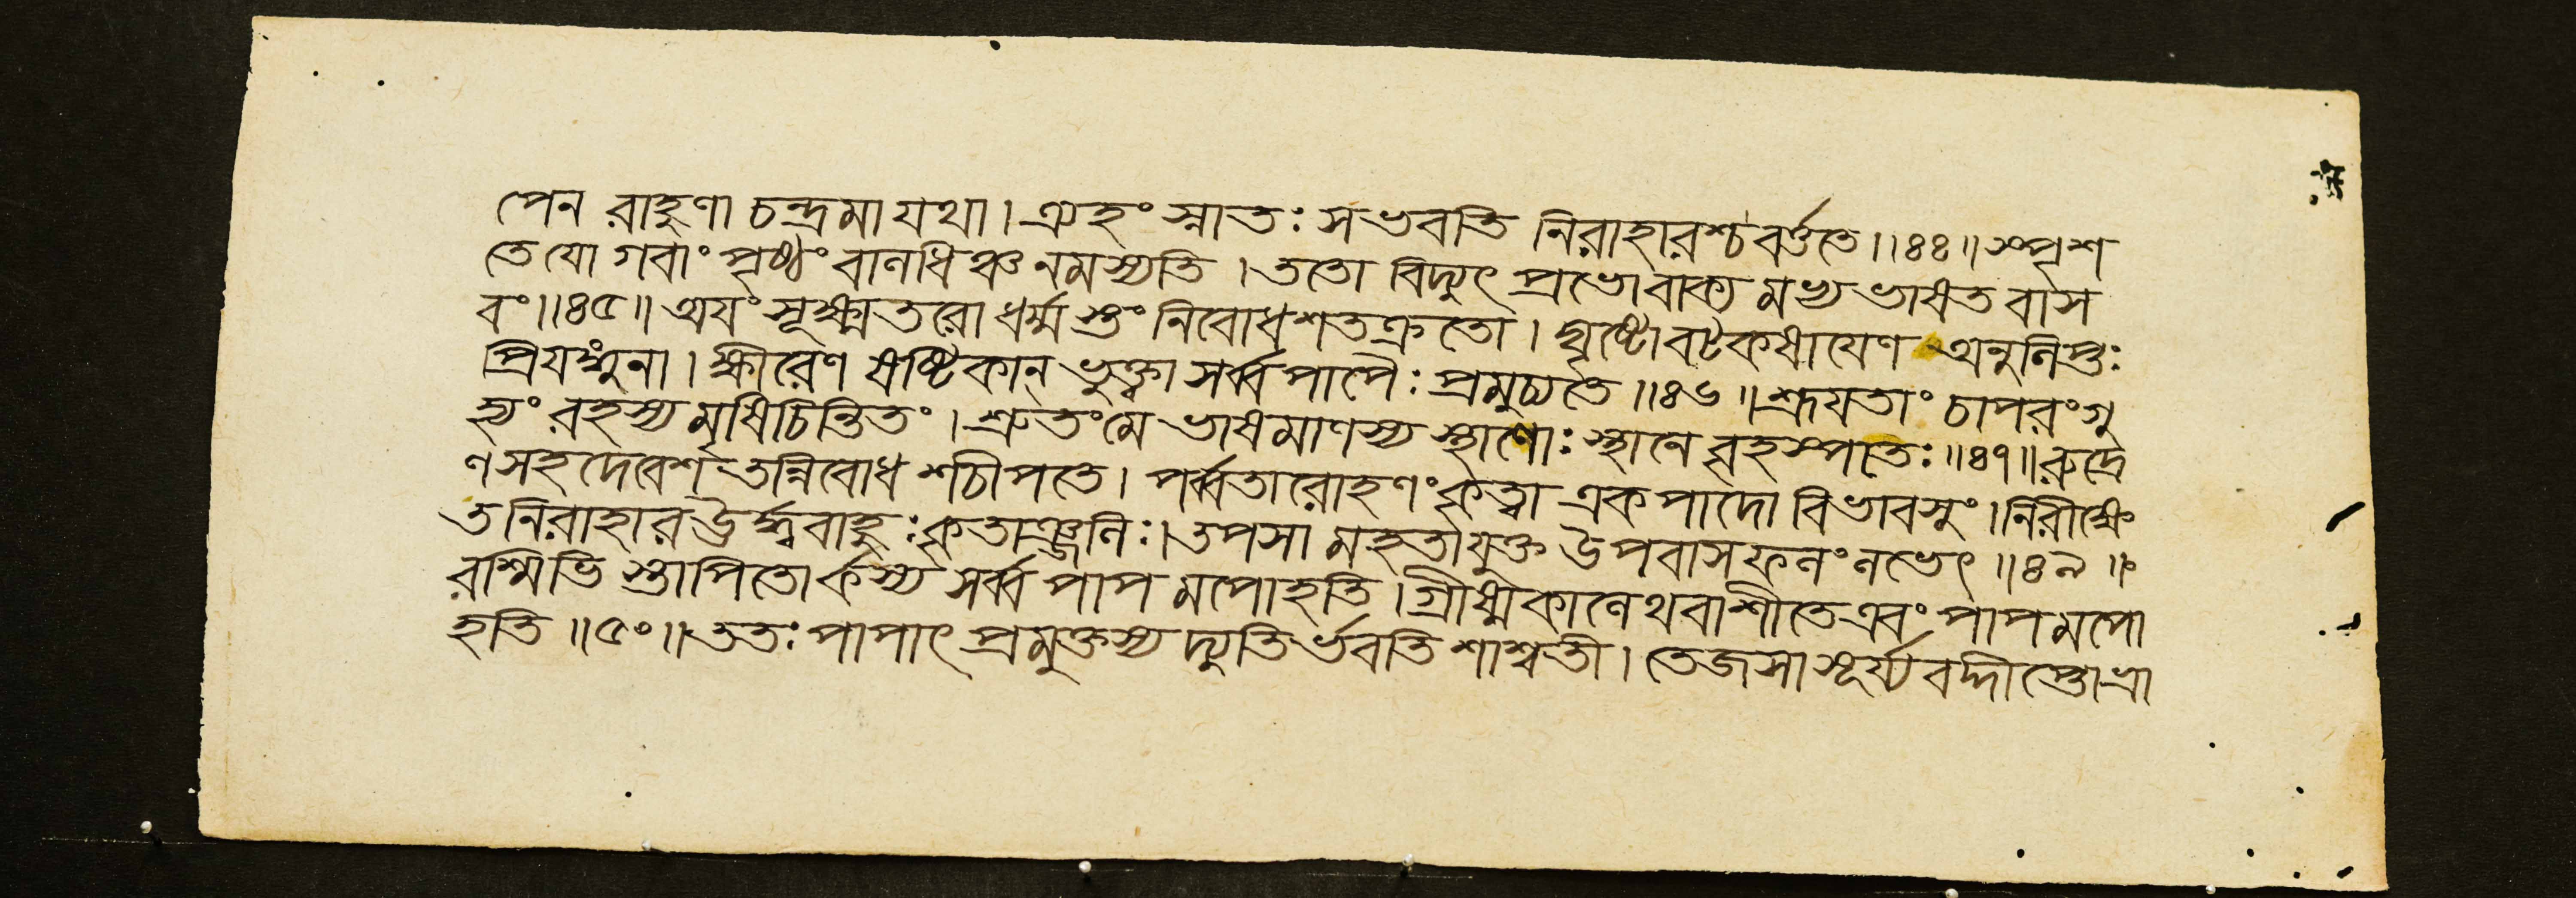 পেন রাহুণা চন্দ্রমা যথা। ত্র্যহং স্নাতঃ সভবতি নিরাহারশ্চ বর্ত্ততে॥৪৪॥ স্পৃশ
তে যো গবাং পৃষ্ঠং বালধিঞ্চ নমস্যতি। ততো বিদ্যুৎ প্রভোবাক্য মভ্য ভাষত বাস
বং॥৪৫॥ অযং সূক্ষ্মতরো ধর্ম্ম স্তং নিবোধ শতক্রতো। ঘৃষ্টো বট কষাযেণ অনুলিপ্তঃ
প্রিযঙ্গুনা। ক্ষীরেণ ষষ্টিকান্ ভুক্ত্বা সর্ব্ব পাপৈঃ প্রমুচ্যতে॥৪৬॥ শ্রূযতাং চাপরং গু
হ্যং রহস্য মৃষিচিন্তিতং। শ্রুতং মে ভাষমাণস্য স্থাণোঃ স্থানে বৃহস্পতিঃ॥৪৭॥ রুদ্রে
ণ সহ দেবেশ তন্নিবোধ শচীপতে। পর্ব্বতারোহণং কৃত্বা একপাদো বিভাবসুং। নিরীক্ষে
ত নিরাহার ঊর্দ্ধ্ববাহুঃ কৃতাঞ্জলিঃ। তপসা মহতা যুক্ত উপবাস ফলং লভেৎ॥৪৯॥
রশ্মিভি স্তাপিতোর্কস্য সর্ব্ব পাপ মপোহতি। গ্রীষ্মকালেথবাশীতে এবং পাপ মপো
হতি॥৫০॥ ততঃ পাপাৎ প্রমুক্তস্য দ্যুতির্ভবতি শাশ্বতী। তেজসা সূর্য্যবদ্দীপ্তো ভ্রা